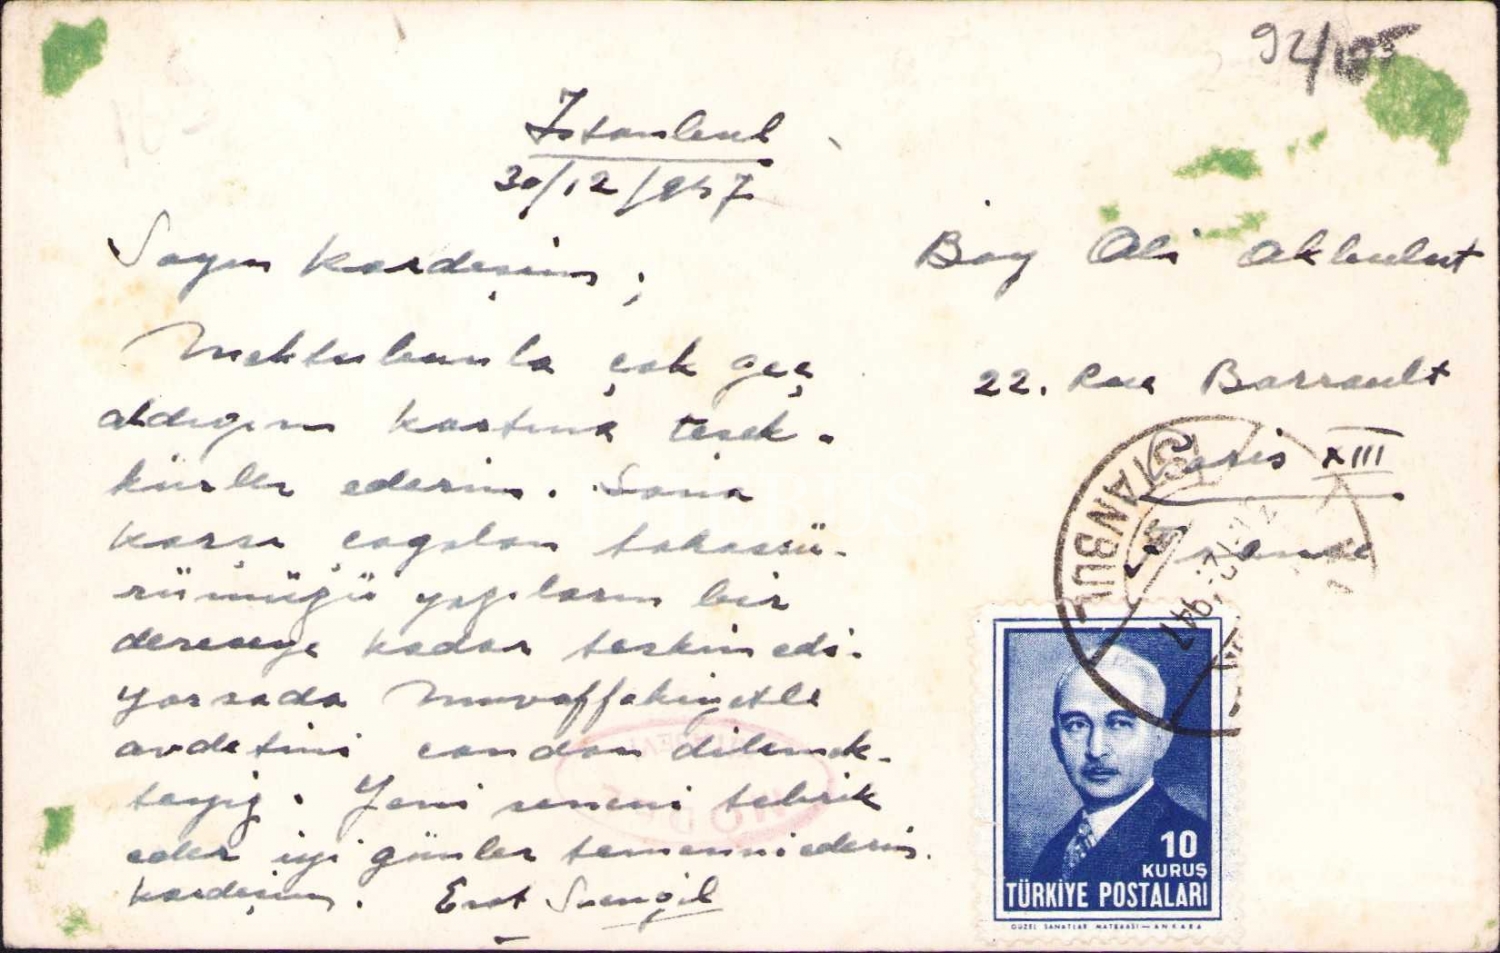 92/105
İstanbul
30/12/947
Sayın kardeşim;
Mektubunla çok geç
aldığım kartına teşek-
kürler ederim. Sana
karşı çoğalan tahassü-
rümüzü yazıların bir
dereceye kadar teskin edi-
yorsada muvaffakiyetle
avdetini candan dilemek-
teyiz. Yeni seneni tebrik
eder iyi günler temenni ederim
kardeşim. Esat
Bay Ali Akbulut
22. Rue Barrault
Paris XIII
France
İSTANBUL
947
10
KURUŞ
TÜRKİYE POSTALARI
GÜZEL SANATLAR MATBAASI — ANKARA